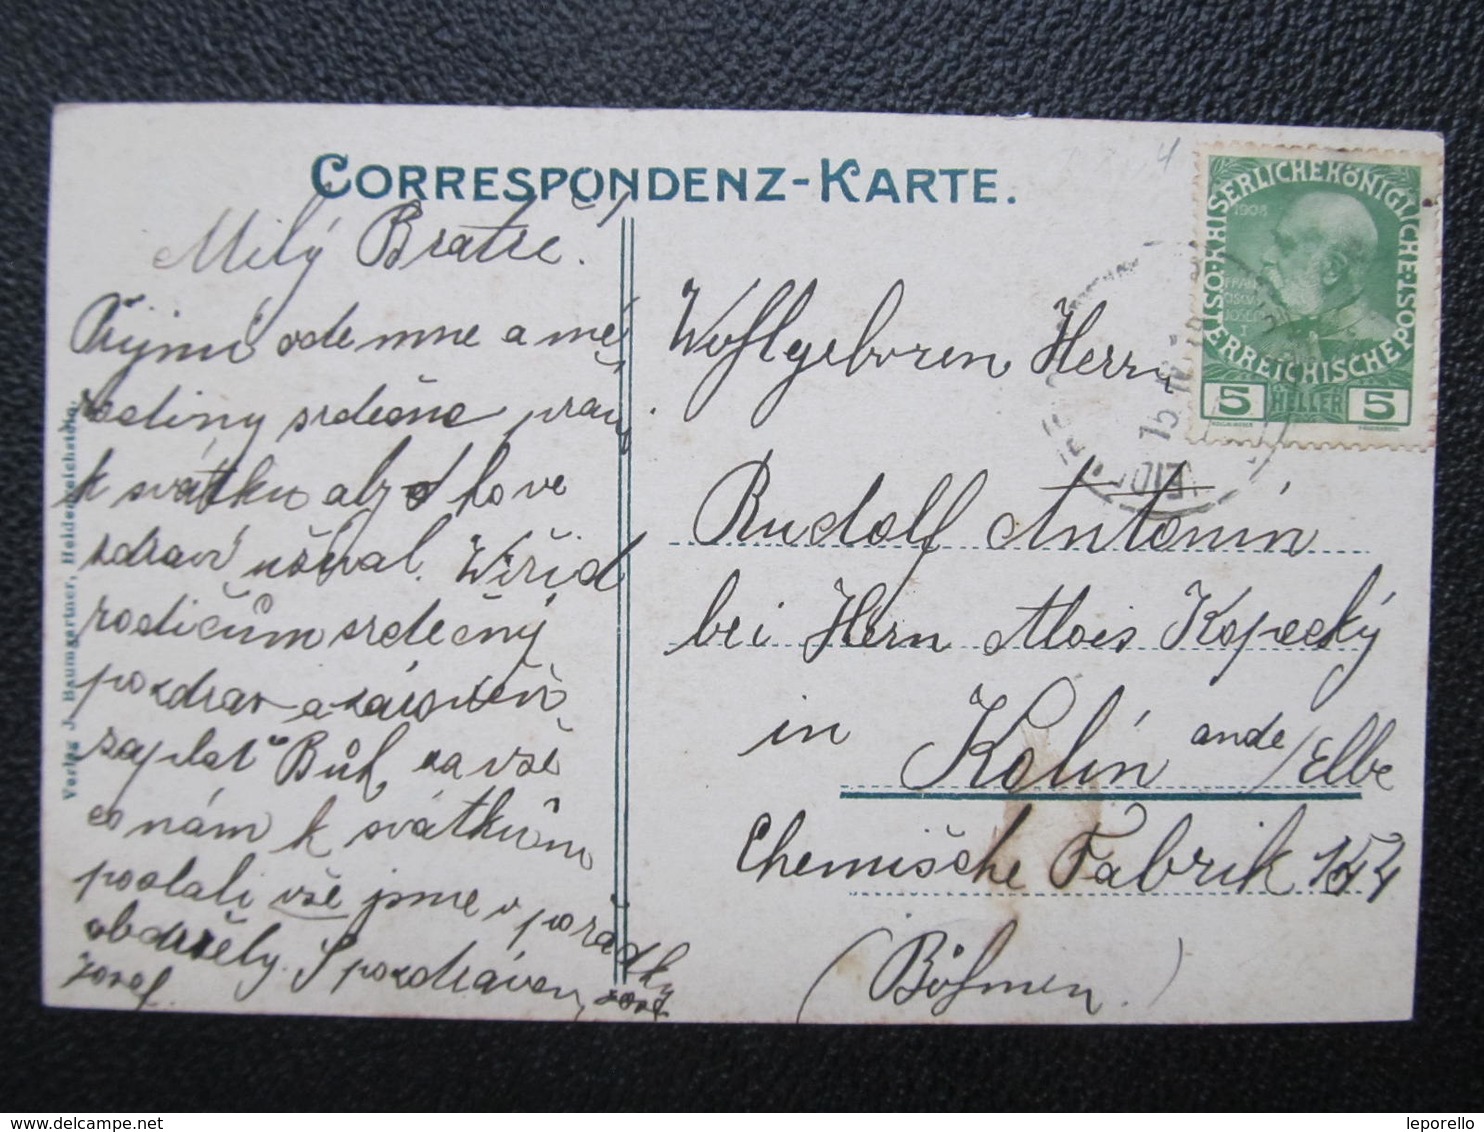 CORRESPONDENZ-KARTE.
Milý Bratře!
Přijmi odemne a mé
rodiny srdečné přání
k svátku abys
zdraví užíval. Vyřiď
rodičům srdečný
pozdrav a zároveň
zaplať Bůh za vše
co nám k svátkům
poslali vše jsme v pořádky
obdrželly. S pozdravem
Josef
Josef
Verlag J. Baumgartner, Heidenreichstein.
KAISERLICHE KÖNIGLICHE
ÖSTERREICHISCHE POST
1908
FRANZ
JOSEF
I
5 HELLER 5
Wohlgeboren Herrn
Rudolf Antonín
bei Herrn Alois Kopecký
in Kolín an de/Elbe
Chemische Fabrik
(Böhmen.)
leporello